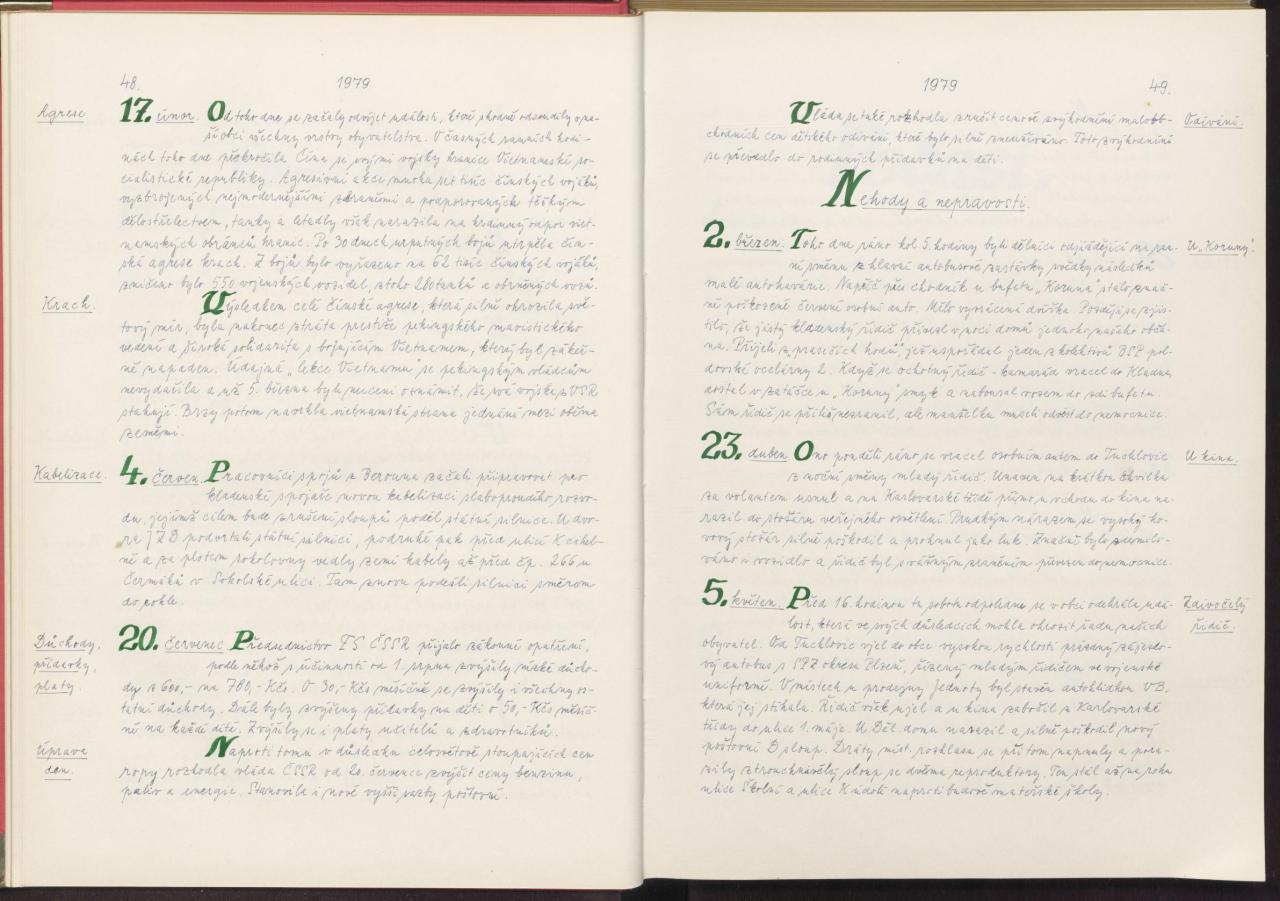 48.
1979
Agrese.
17. únor. Od toho dne se začaly odvíjet události, které shodně odsoudily v na-
ší obci všechny vrstvy obyvatelstva. V časných ranních hodi-
nách toho dne překročila Čína svými vojsky hranice Vietnamské so-
cialistické republiky. Agresivní akce mnoha set tisíc čínských vojáků,
vyzbrojených nejmodernějšími zbraněmi a podporovaných těžkým
dělostřelectvem, tanky a letadly však narazila na hrdinný odpor viet-
namských obránců hranic. Po 30 dnech urputných bojů utrpěla čín-
ská agrese krach. Z bojů bylo vyřazeno na 62 tisíc čínských vojáků,
zničeno bylo 550 vojenských vozidel, z toho 280 tanků a obrněných vozů.
Krach.
Výsledkem celé čínské agrese, která silně ohrozila svě-
tový mír, byla nakonec ztráta prestiže pekingského maoistického
vedení a široká solidarita s bojujícím Vietnamem, který byl zákeř-
ně napaden. Údajná „lekce Vietnamu se pekingským vládcům
nevydařila a už 5. března byli nuceni oznámit, že svá vojska z VSR
stahují. Brzy potom navrhla vietnamská strana jednání mezi oběma
zeměmi.
Kabelizace.
4. červen. Pracovníci spojů z Berouna začali připravovat pro
kladenské spojaře novou kabelizaci slaboproudého rozvo-
du, jejímž cílem bude zrušení sloupů podél státní silnice. U dvo-
ra JZD podvrtali státní silnici, podruhé pak před ulicí K cihel-
ně a za plotem sokolovny vedly zemí kabely až před čp. 266 u
Čermáků v Sokolské ulici. Tam znovu podešli silnici směrem
do
Důchody,
přídavky,
platy.
20. červenec. Předsednictvo FS ČSSR přijalo zákonné opatření,
podle něhož s účinností od 1. srpna zvýšily nízké důcho-
dy z 600,- na 780,- Kčs. O 30,- Kčs měsíčně se zvýšily i všechny os-
tatní důchody. Dále byly zvýšeny přídavky na děti o 50,- Kčs měsíč-
ně na každé dítě. Zvýšily se i platy učitelů a zdravotníků.
Úprava
cen.
Naproti tomu v důsledku celosvětově stoupajících cen
ropy rozhodla vláda ČSSR od 20. července zvýšit ceny benzinu,
paliv a energie. Stanovila i nové vyšší sazby poštovní.
1979
49.
Odívání.
Vláda se také rozhodla zrušit cenové zvýhodnění maloob-
chodních cen dětského odívání, které bylo silně zneužíváno. Toto zvýhodnění
se převedlo do rodinných přídavků na děti.
Nehody a nepravosti.
2. březen. Toho dne ráno kol 5. hodiny byli dělníci odjíždějící na ran-
U „Koruny“.
ní směnu z hlavní autobusové zastávky svědky následků
malé autohavárie. Napříč přes chodník u bufetu „Koruna“ stálo znač-
ně poškozené červené osobní auto. Mělo vyvrácená dvířka. Později se zjis-
tilo, že jistý kladenský řidič přivezl v noci domů jednoho našeho obča-
na. Přijeli z „prasečích hodů“, jež uspořádal jeden z kolektivů BSP pol-
dovské ocelárny 2. Když se ochotný řidič - kamarád vracel do Kladna,
dostal v zatáčce u „Koruny“ smyk a naboural vozem do zdi bufetu.
Sám řidič se příliš nezranil, ale manželku museli odvézt do nemocnice.
23. duben. Ono pondělí ráno se vracel osobním autem do Tuchlovic
U kina.
z noční směny mladý řidič. Unaven na krátkou chvilku
za volantem usnul a na Karlovarské třídě přímo u vchodu do kina na-
razil do stožáru veřejného osvětlení. Prudkým nárazem se vysoký ko-
vový stožár silně poškodil a prohnul jako luk. Značně bylo zdemolo-
váno i vozidlo a řidič byl s vážným zraněním převezen do nemocnice.
5. květen. Před 16. hodinou tu sobotu odpoledne se v obci odehrála udá-
Zdivočelý
řidič.
lost, která ve svých důsledcích mohla ohrozit řadu našich
obyvatel. Od Tuchlovic vjel do obce vysokou rychlostí prázdný zájezdo-
vý autobus s SPZ okresu Plzeň, řízený mladým řidičem ve vojenské
uniformě. V místech u prodejny Jednoty byl stavěn autohlídkou VB,
která jej stíhala. Řidič však ujel a u kina zabočil z Karlovarské
třídy do ulice 1. máje. U Děl. domu narazil a silně poškodil nový
poštovní sloup. Dráty míst. rozhlasu se při tom napnuly a pora-
zily ztrouchnivělý sloup se dvěma reproduktory. Ten stál až na rohu
ulice Školní a ulice K údolí naproti budově mateřské školy.